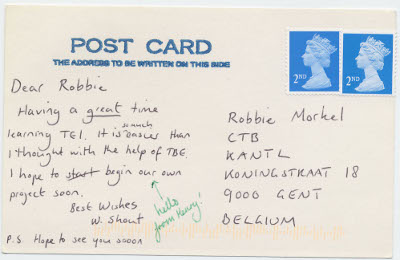 POST CARD
THE ADDRESS TO BE WRITTEN ON THIS SIDE
2ND
2ND
Dear Robbie
Having a great time
learning TEI. It is so much easier than
I thought with the help of TBE.
I hope to start begin our own
project soon.
Best Wishes
W. Shout
hello
from Henry!
P.S. Hope to see you soon
Robbie Morkel
CTB
KANTL
KONINGSTRAAT 18
9000 GENT
BELGIUM